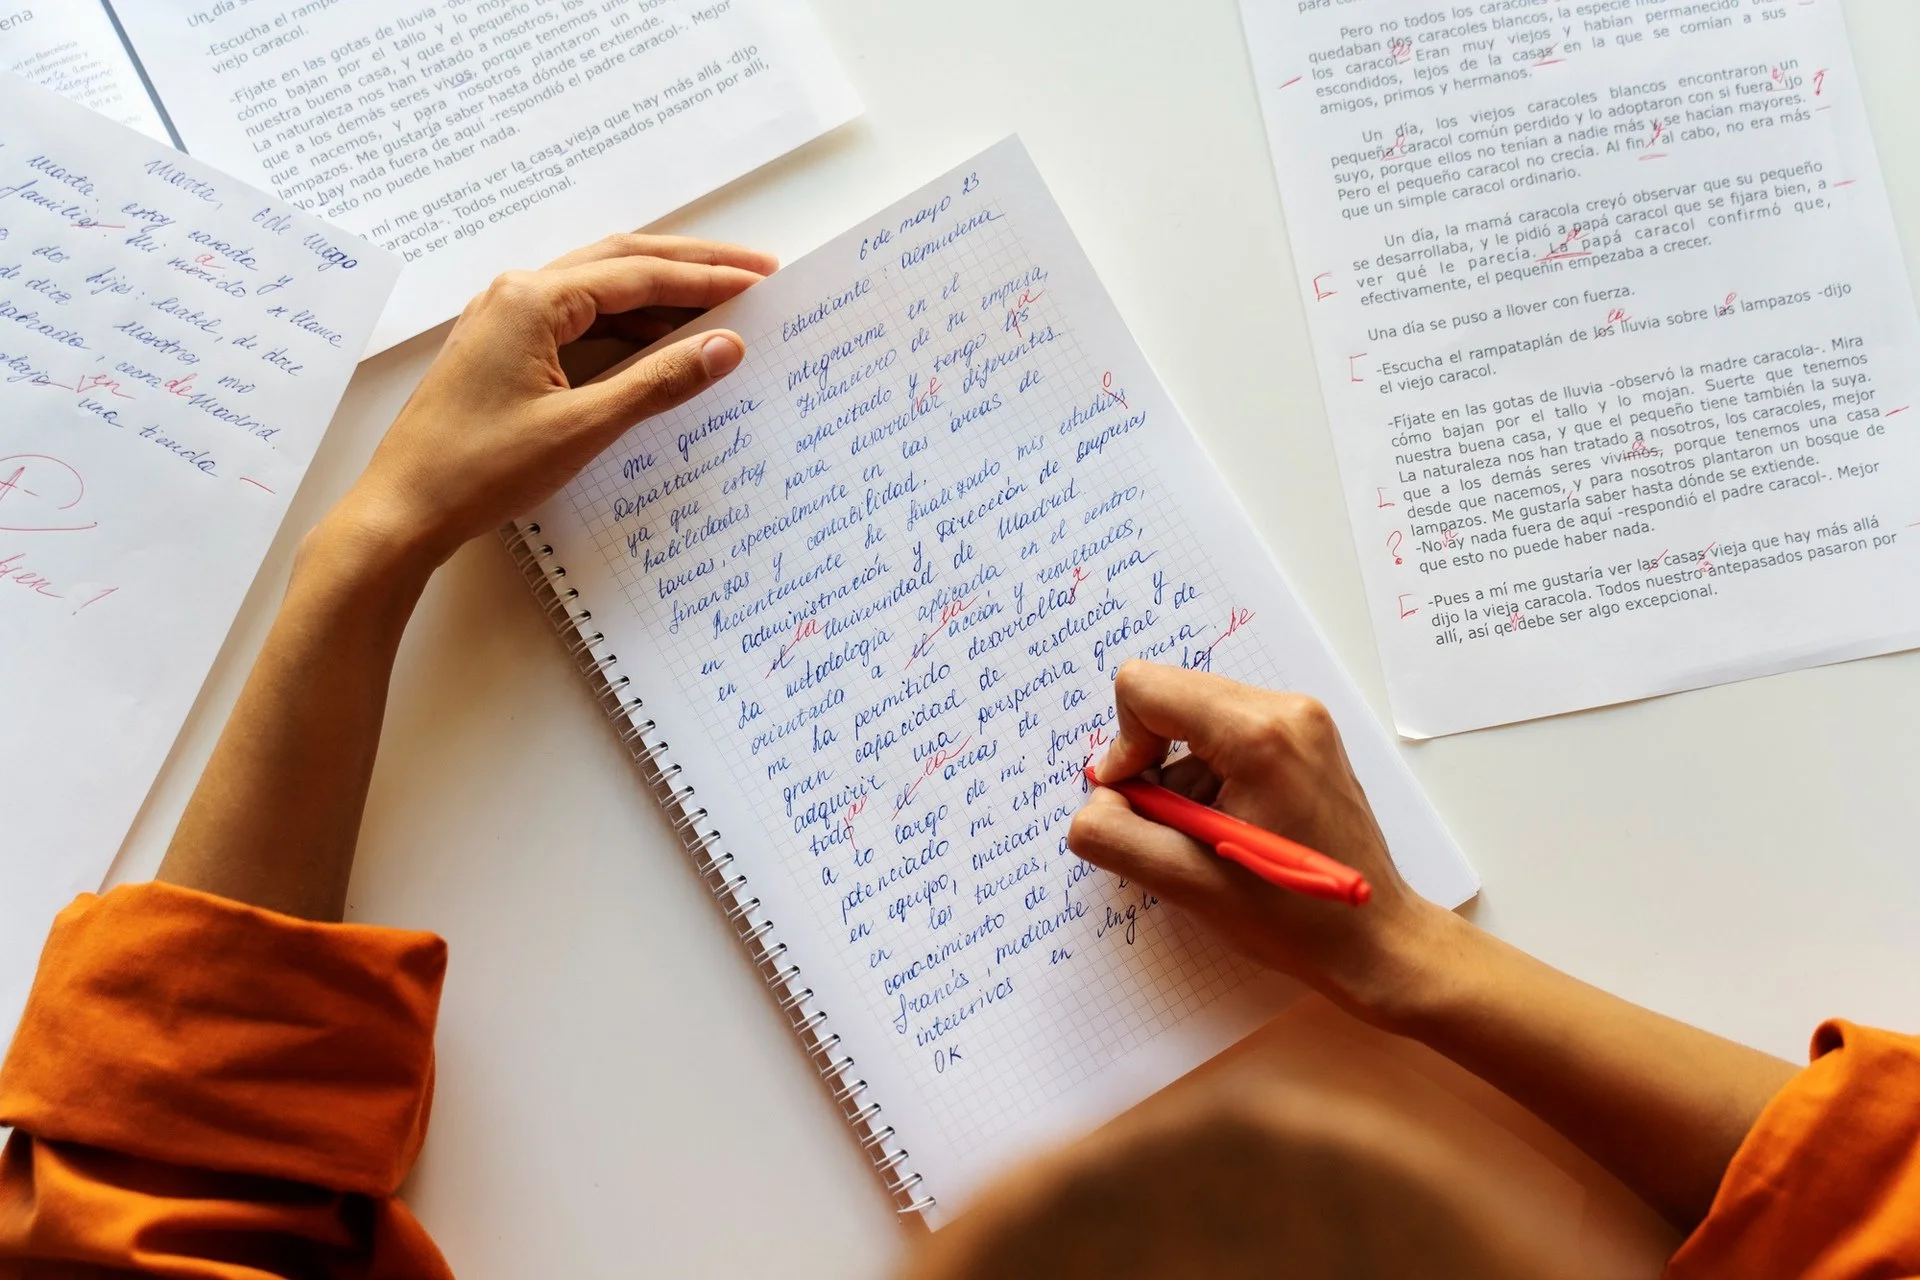 Un día s
-Escucha el rampa
viejo caracol.
-Fíjate en las gotas de lluvia -ob
cómo bajan por el tallo y lo moja
nuestra buena casa, y que el pequeño ti
La naturaleza nos han tratado a nosotros, los
que a los demás seres vivos, porque tenemos una
nacemos, y para nosotros plantaron un bos
lampazos. Me gustaría saber hasta dónde se extiende.
No hay nada fuera de aquí -respondió el padre caracol-. Mejor
esto no puede haber nada.
a mí me gustaría ver la casa vieja que hay más allá -dijo
aracola-. Todos nuestros antepasados pasaron por allí,
be ser algo excepcional.
Marta, 6 de mayo
Marta. Estoy casada y
familia. Mi marido se llama
dos hijos: Isabel, de doce
de diez
nosotros, mi
cerca de Madrid.
trabajo en una tienda
A-
bien!
6 de mayo 23
Estudiante: Almudena
Me gustaria integrarme en el
Departamento Financiero de su empresa,
ya que estoy capacitado y tengo los a
habilidades para desarrollar diferentes
tareas, especialmente en las áreas de
finanzas y contabilidad.
Recientemente he finalizado mis estudios o
en administración y Dirección de Empresas
en el la Universidad de Madrid.
La metodología aplicada en el centro,
orientada a el la acción y resultados,
me ha permitido desarrollas r una
gran capacidad de resolución y
adquirir una perspectiva global de
todo as el la areas de la empresa.
a lo largo de mi formac haj he
potenciado mi espiritu
en equipo, iniciativa
en las tareas,
conocimiento de idi
francés, mediante
intensivos en Inglé
OK
Pero no todos los caracoles
quedaban dos caracoles blancos, la especie
los caracol Eran muy viejos y habían permanecido
escondidos, lejos de la casas en la que se comían a sus
amigos, primos y hermanos.
Un día, los viejos caracoles blancos encontraron un
pequeña caracol común perdido y lo adoptaron con si fuera ijo ?
suyo, porque ellos no tenían a nadie más y se hacían mayores.
Pero el pequeño caracol no crecía. Al fin y al cabo, no era más
que un simple caracol ordinario.
Un día, la mamá caracola creyó observar que su pequeño
se desarrollaba, y le pidió a papá caracol que se fijara bien, a
ver qué le parecía. La papá caracol confirmó que,
efectivamente, el pequeñín empezaba a crecer.
Una día se puso a llover con fuerza.
-Escucha el rampataplán de los la lluvia sobre las lampazos -dijo
el viejo caracol.
-Fíjate en las gotas de lluvia -observó la madre caracola-. Mira
cómo bajan por el tallo y lo mojan. Suerte que tenemos
nuestra buena casa, y que el pequeño tiene también la suya.
La naturaleza nos han tratado a nosotros, los caracoles, mejor
que a los demás seres vivimos, porque tenemos una casa
desde que nacemos, y para nosotros plantaron un bosque de
lampazos. Me gustaría saber hasta dónde se extiende.
? -No ay nada fuera de aquí -respondió el padre caracol-. Mejor
que esto no puede haber nada.
-Pues a mí me gustaría ver las casas vieja que hay más allá
dijo la vieja caracola. Todos nuestro antepasados pasaron por
allí, así qe debe ser algo excepcional.